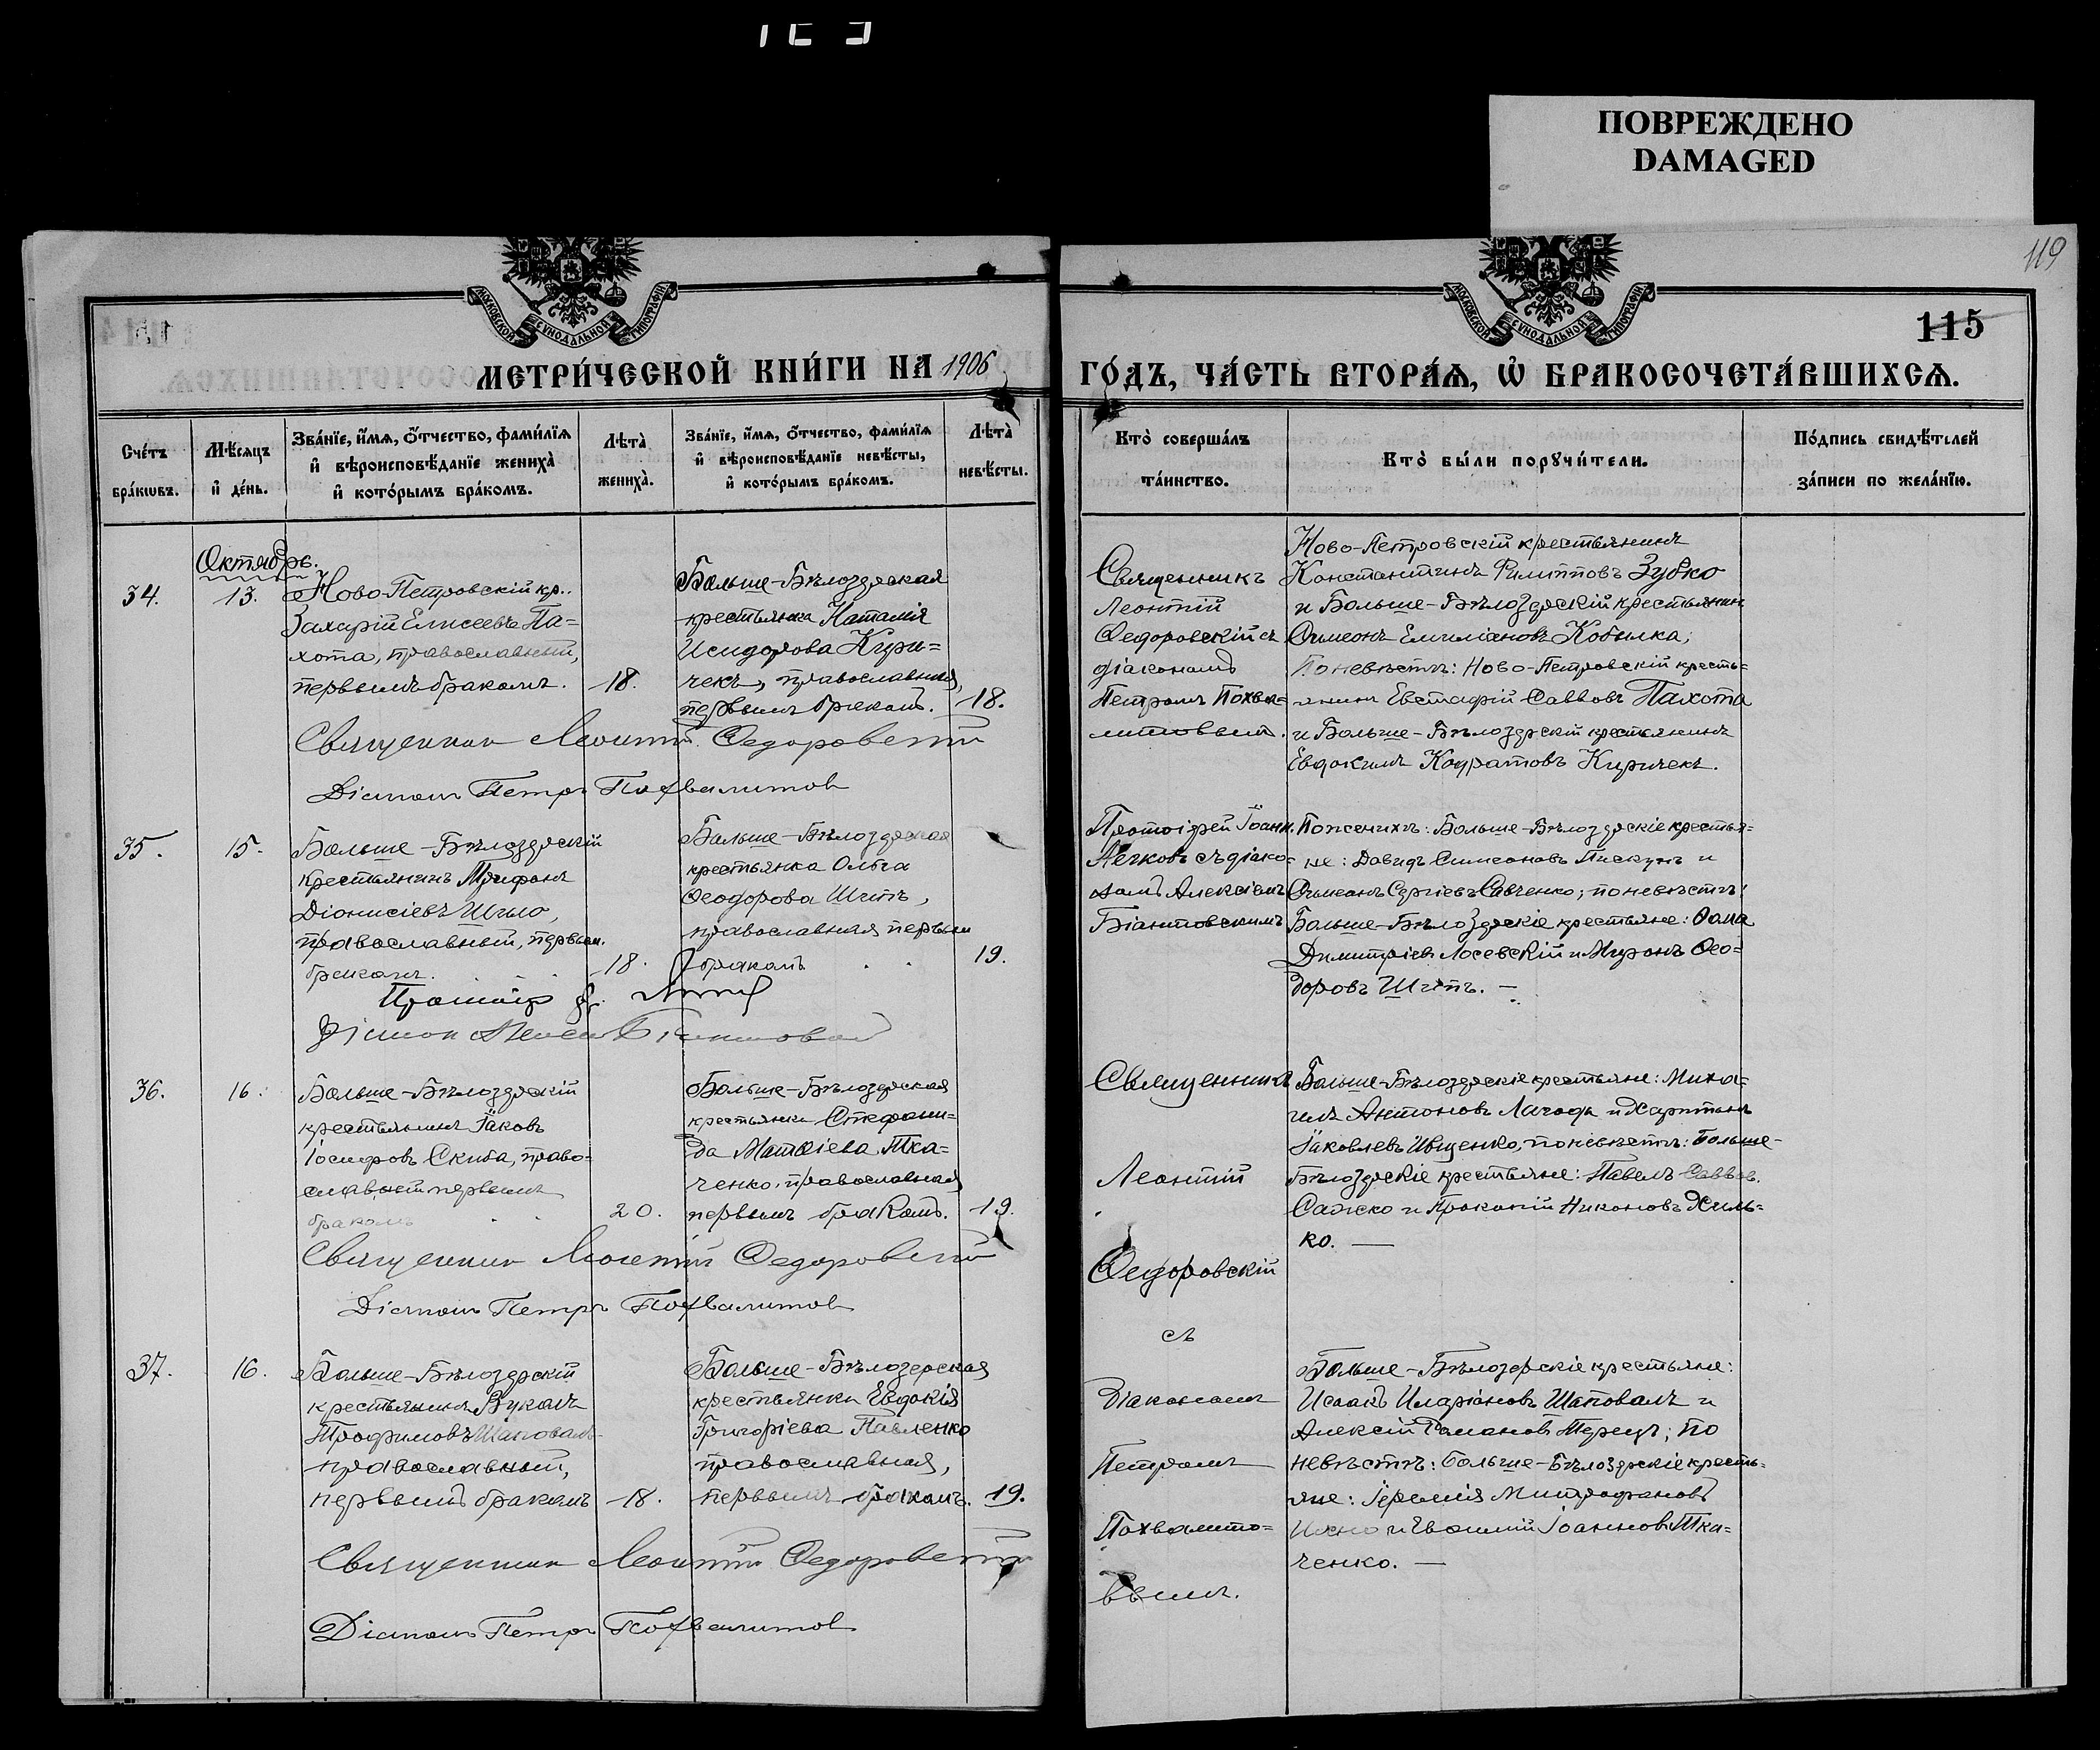 ПОВРЕЖДЕНО
DAMAGED
119
115
МОСКОВСКОЙ СѴНОДАЛЬНОЙ ТИПОГРАФІИ
МОСКОВСКОЙ СѴНОДАЛЬНОЙ ТИПОГРАФІИ
МЕТРИ́ЧЕСКОЙ КНИ́ГИ НА 1906
ГО́ДЪ, ЧА́СТЬ ВТОРА́Ѧ, Ѽ БРАКОСОЧЕТА́ВШИХСѦ.
Сче́тъ
бра́кωвъ.
Мѣ́сѧцъ
и҆ де́нь.
Зва́нїе, и҆́мѧ, ѻ҆́тчество, фами́лїѧ
и҆ вѣроисповѣ́данїе жениха̀
и҆ кото́рымъ бра́комъ.
Лѣ́та̀
жениха̀.
Зва́нїе, и҆́мѧ, ѻ҆́тчество, фами́лїѧ
и҆ вѣроисповѣ́данїе невѣ́сты,
и҆ кото́рымъ бра́комъ.
Лѣ́та̀
невѣ́сты.
Кто̀ соверша́лъ
та́инство.
Кто̀ бы́ли порꙋчи́тели.
По́дпись свидѣ́телей
за́писи по жела́нїю.
Октябрь.
34.
13.
Ново-Петровскій кр..
Захарій Елисеевъ Па=
хота, православный,
первымъ бракомъ.
18.
Больше-Бѣлозерская
крестьянка Наталія
Исидорова Кири=
чекъ, православная,
первымъ бракомъ.
18.
Священникъ
Леонтій
Ѳедоровскій съ
діакономъ
Петромъ Похва=
литовымъ.
Ново-Петровскій крестьянинъ
Константинъ Филипповъ Зубко
и Больше-Бѣлозерскій крестьянин
Симеонъ Емиліановъ Кобылка;
По невѣстѣ: Ново-Петровскій кресть=
янинъ Евстафій Саввовъ Пахота
и Больше-Бѣлозерскій крестьянинъ
Евдокимъ Кодратовъ Киричекъ.
Священник Леонтій Ѳедоровскій
Діаконъ Петръ Похвалитов
35.
15.
Больше-Бѣлозерскій
крестьянинъ Трифонъ
Діонисіевъ Шило,
православный, первым.
бракомъ.
18.
Больше-Бѣлозерская
крестьянка Ольга
Ѳеодорова Шить,
православная первым
бракомъ
19.
Протоіерей Іоанн.
Легковъ съ діако=
номъ Алексіемъ
Біантовскимъ
По женихѣ: Больше-Бѣлозерскіе крестья=
не: Давидъ Симеоновъ Пискунъ и
Симеонъ Сергіевъ Савченко; по невѣстѣ:
Больше-Бѣлозерскіе крестьяне: Ѳома
Димитріев Лосевскій и Миронъ Ѳео=
доровъ Шить.
Протоіер
Діакон Алексій Біантовский
36.
16.
Больше-Бѣлозерскій
крестьянинъ Іаковъ
Іосифовъ Скиба, право=
славный первымъ
бракомъ
20.
Больше-Бѣлозерская
крестьянка Стефани=
да Матѳіева Тка=
ченко, православная
первымъ бракомъ.
19.
Священникъ
Леонтій
Ѳедоровскій
съ
Діакономъ
Петромъ
Похвалито=
вымъ.
Больше-Бѣлозерскіе крестьяне: Миха=
илъ Антоновъ Лагода и Харитонъ
Іаковлевъ Ищенко, по невѣстѣ: Больше-
Бѣлозерскіе крестьяне: Павелъ Саввов.
Сажко и Прокопій Никоновъ Хиль=
ко. —
Священник Леонтій Ѳедоровскій
Діаконъ Петръ Похвалитов
37.
16.
Больше-Бѣлозерскій
крестьянинъ Вуколъ
Трофимовъ Шаповалъ
православный,
первымъ бракомъ
18.
Больше-Бѣлозерская
крестьянка Евдокія
Григоріева Павленко
православная,
первымъ бракомъ.
19.
Больше-Бѣлозерскіе крестьяне:
Исаакъ Иларіоновъ Шаповалъ и
Алексій Романовъ Терецъ; по
невѣстѣ: Больше-Бѣлозерскіе кресть=
яне: Іеремія Митрофановъ
и Іоанновъ Тка=
ченко. —
Священник Леонтій Ѳедоровскій
Діаконъ Петръ Похвалитов